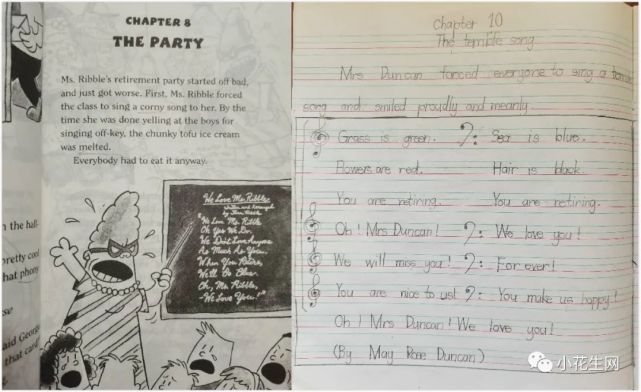 CHAPTER 8
THE PARTY
Ms. Ribble's retirement party started off bad,
and just got worse. First, Ms. Ribble forced
the class to sing a corny song to her. By the
time she was done yelling at the boys for
singing off-key, the chunky tofu ice cream
was melted.
Everybody had to eat it anyway.
We Love Ms. Ribble
"We Love Ms. Ribble
Oh Yes We Do.
We Don't Love Anyone
As Much As You.
When You Retire,
We'll Be Blue.
Oh, Ms. Ribble,
We Love You!"
n the hall.
pretty cool
hat phony
se
said George
that card
Chapter 10
The terrible song
Mrs Duncan forced everyone to sing a
song and smiled proudly and meanly.
Grass is green. Sea is blue.
Flowers are red. Hair is black.
You are retiring. You are retining.
Oh! Mrs Duncan! We love you!
We will miss you! For ever!
You are nice to us! You make us happy!
Oh! Mrs Duncan! We love you!
(By May Rose Duncan)
小花生网